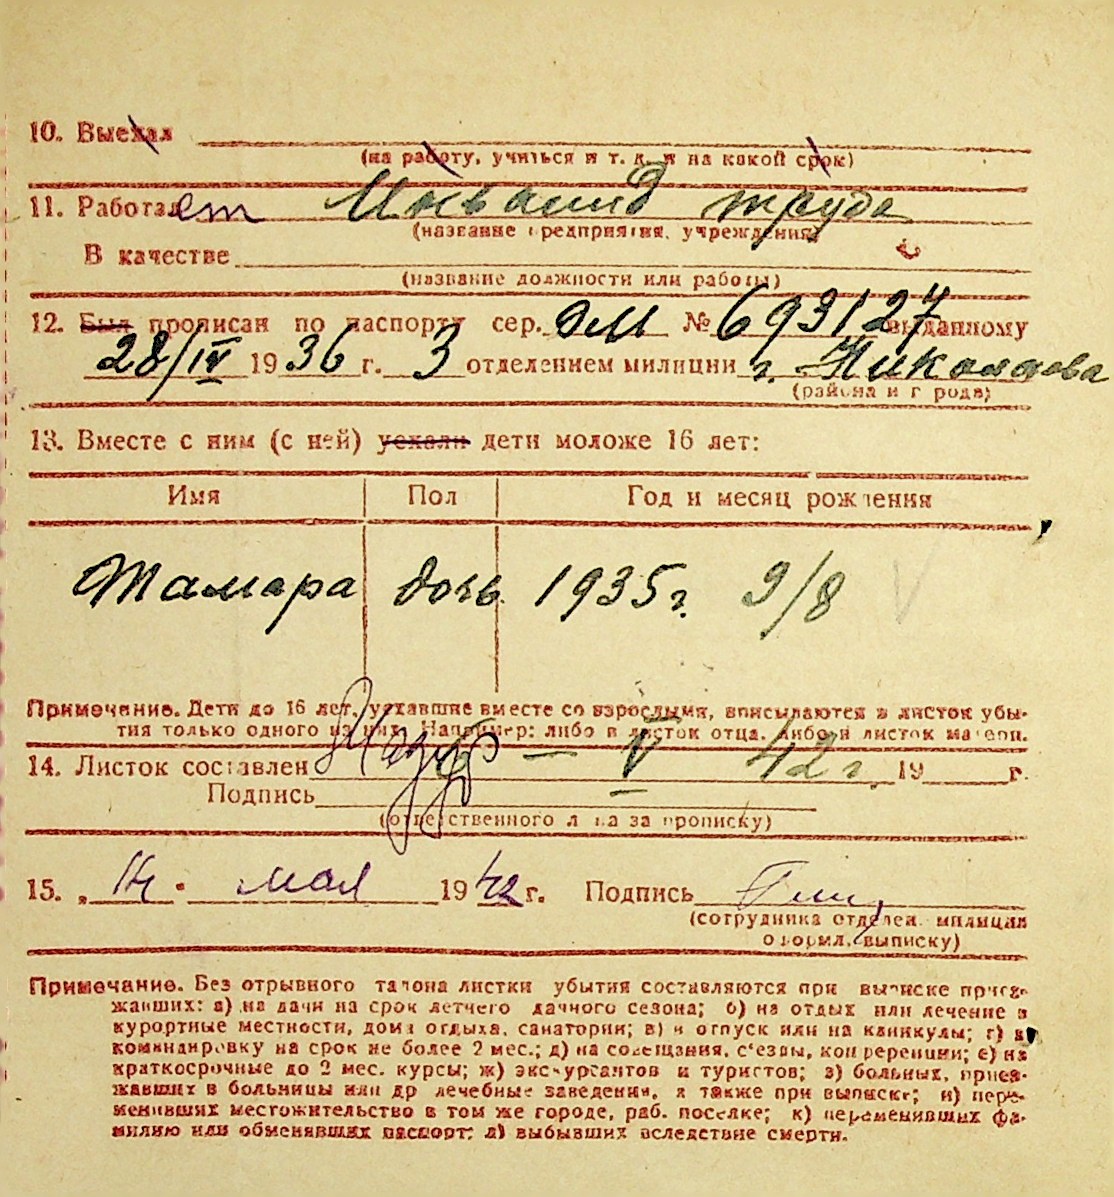 10. Выехал
(на работу, учиться и т. д. и на какой срок)
11. Работает Инвалид труда
(название предприятия, учреждения)
В качестве
(название должности или работы)
12. Был прописан по паспорту сер. ЭМ № 693127 выданному
28/IV 1936 г. 3 отделением милиции г. Николаева
(района и города)
13. Вместе с ним (с ней) уехали дети моложе 16 лет:
Имя Пол Год и месяц рождения
Тамара дочь 1935 г. 9/8
Примечание. Дети до 16 лет, уехавшие вместе со взрослыми, вписываются в листок убы-
тия только одного из них. Например: либо в листок отца, либо в листок матери.
14. Листок составлен 6 — V 42 г. 19 г.
Подпись
(ответственного лица за прописку)
15. „14" мая 1942 г. Подпись
(сотрудника отделен. милиции
оформл. выписку)
Примечание. Без отрывного талона листки убытия составляются при выписке приез-
жавших: а) на дачи на срок летнего дачного сезона; б) на отдых или лечение в
курортные местности, дома отдыха, санатории; в) в отпуск или на каникулы; г) в
командировку на срок не более 2 мес.; д) на совещания, с'езды, конференции; е) на
краткосрочные до 2 мес. курсы; ж) экскурсантов и туристов; з) больных, приез-
жавших в больницы или др лечебные заведения, а также при выписке; и) пере-
менивших местожительство в том же городе, раб. поселке; к) переменивших фа-
милию или обменявших паспорт; л) выбывших вследствие смерти.